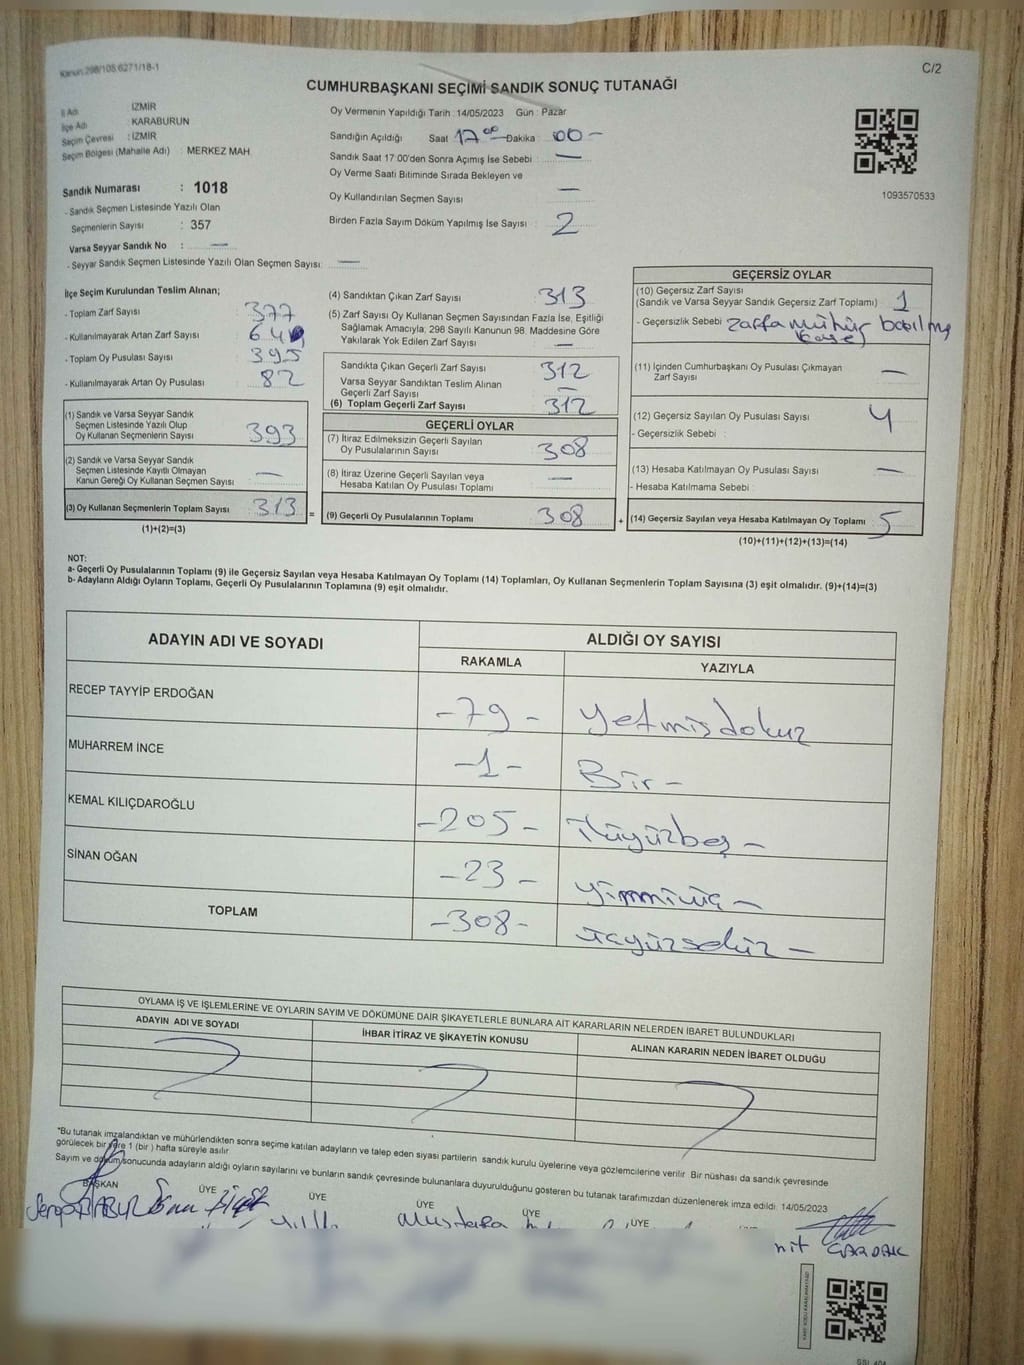 Kanun:298/105,6271/18-1
C/2
CUMHURBAŞKANI SEÇİMİ SANDIK SONUÇ TUTANAĞI
İl Adı : İZMİR
İlçe Adı : KARABURUN
Seçim Çevresi : İZMİR
Seçim Bölgesi (Mahalle Adı) : MERKEZ MAH.
Sandık Numarası : 1018
- Sandık Seçmen Listesinde Yazılı Olan
Seçmenlerin Sayısı : 357
Varsa Seyyar Sandık No : —
- Seyyar Sandık Seçmen Listesinde Yazılı Olan Seçmen Sayısı: —
Oy Vermenin Yapıldığı Tarih :14/05/2023 Gün : Pazar
Sandığın Açıldığı Saat 17⁰⁰ Dakika : 00 -
Sandık Saat 17 00'den Sonra Açımış İse Sebebi : —
Oy Verme Saati Bitiminde Sırada Bekleyen ve
Oy Kullandırılan Seçmen Sayısı : —
Birden Fazla Sayım Döküm Yapılmış İse Sayısı : 2
1093570533
İlçe Seçim Kurulundan Teslim Alınan;
- Toplam Zarf Sayısı : 377
- Kullanılmayarak Artan Zarf Sayısı : 64
- Toplam Oy Pusulası Sayısı : 395
- Kullanılmayarak Artan Oy Pusulası : 82
(1) Sandık ve Varsa Seyyar Sandık
Seçmen Listesinde Yazılı Olup
Oy Kullanan Seçmenlerin Sayısı : 393
(2) Sandık ve Varsa Seyyar Sandık
Seçmen Listesinde Kayıtlı Olmayan
Kanun Gereği Oy Kullanan Seçmen Sayısı : —
(3) Oy Kullanan Seçmenlerin Toplam Sayısı : 313
(1)+(2)=(3)
(4) Sandıktan Çıkan Zarf Sayısı : 313
(5) Zarf Sayısı Oy Kullanan Seçmen Sayısından Fazla İse, Eşitliği
Sağlamak Amacıyla; 298 Sayılı Kanunun 98. Maddesine Göre
Yakılarak Yok Edilen Zarf Sayısı : —
Sandıkta Çıkan Geçerli Zarf Sayısı : 312
Varsa Seyyar Sandıktan Teslim Alınan
Geçerli Zarf Sayısı : —
(6) Toplam Geçerli Zarf Sayısı : 312
GEÇERLİ OYLAR
(7) İtiraz Edilmeksizin Geçerli Sayılan
Oy Pusulalarının Sayısı : 308
(8) İtiraz Üzerine Geçerli Sayılan veya
Hesaba Katılan Oy Pusulası Toplamı : —
(9) Geçerli Oy Pusulalarının Toplamı : 308
GEÇERSİZ OYLAR
(10) Geçersiz Zarf Sayısı
(Sandık ve Varsa Seyyar Sandık Geçersiz Zarf Toplamı) : 1
- Geçersizlik Sebebi : Zarfa mühür
(11) İçinden Cumhurbaşkanı Oy Pusulası Çıkmayan
Zarf Sayısı : —
(12) Geçersiz Sayılan Oy Pusulası Sayısı : 4
- Geçersizlik Sebebi :
(13) Hesaba Katılmayan Oy Pusulası Sayısı : —
- Hesaba Katılmama Sebebi :
(14) Geçersiz Sayılan veya Hesaba Katılmayan Oy Toplamı : 5
(10)+(11)+(12)+(13)=(14)
NOT:
a- Geçerli Oy Pusulalarının Toplamı (9) ile Geçersiz Sayılan veya Hesaba Katılmayan Oy Toplamı (14) Toplamları, Oy Kullanan Seçmenlerin Toplam Sayısına (3) eşit olmalıdır. (9)+(14)=(3)
b- Adayların Aldığı Oyların Toplamı, Geçerli Oy Pusulalarının Toplamına (9) eşit olmalıdır.
ADAYIN ADI VE SOYADI
ALDIĞI OY SAYISI
RAKAMLA YAZIYLA
RECEP TAYYİP ERDOĞAN -79- yetmişdokuz
MUHARREM İNCE -1- Bir -
KEMAL KILIÇDAROĞLU -205- İkiyüzbeş -
SİNAN OĞAN -23- yirmiüç -
TOPLAM -308- üçyüzsekiz -
OYLAMA İŞ VE İŞLEMLERİNE VE OYLARIN SAYIM VE DÖKÜMÜNE DAİR ŞİKAYETLERLE BUNLARA AİT KARARLARIN NELERDEN İBARET BULUNDUKLARI
ADAYIN ADI VE SOYADI İHBAR İTİRAZ VE ŞİKAYETİN KONUSU ALINAN KARARIN NEDEN İBARET OLDUĞU
*Bu tutanak imzalandıktan ve mühürlendikten sonra seçime katılan adayların ve talep eden siyasi partilerin sandık kurulu üyelerine veya gözlemcilerine verilir Bir nüshası da sandık çevresinde
görülecek bir yere 1 (bir ) hafta süreyle asılır
Sayım ve döküm sonucunda adayların aldığı oyların sayılarını ve bunların sandık çevresinde bulunanlara duyurulduğunu gösteren bu tutanak tarafımızdan düzenlenerek imza edildi. 14/05/2023
BAŞKAN ÜYE ÜYE ÜYE ÜYE ÜYE
Mustafa
GARDAK